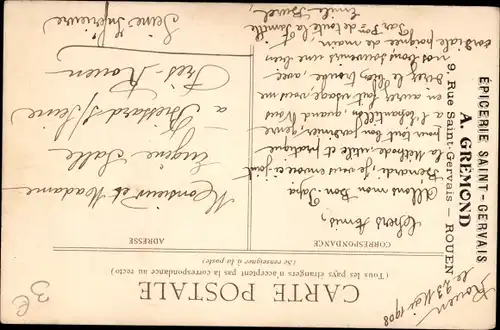 CARTE POSTALE
(Tous les pays étrangers n'acceptent pas la correspondance au recto)
(Se renseigner à la poste)
CORRESPONDANCE
ADRESSE
EPICERIE SAINT-GERVAIS
A. GRÉMOND
9, Rue Saint-Gervais — ROUEN
Rouen
le 23 Mai 1908
Chers Amis,
Allons mon Bon Papa
Renard, je vous envoie ci-joint
la Méthode, utile et pratique
pour tout bon fumeur, genre
à l'échantillon, quand Vous
en aurez fait usage, vous me
direz le
nos bons souvenirs une bien
cordiale poignée de main
Par Pon de toute la famille
Emile
Monsieur et Madame
Eugène Salle
a Bressard s/Seine
Près-Rouen
Seine Inférieure
3 E